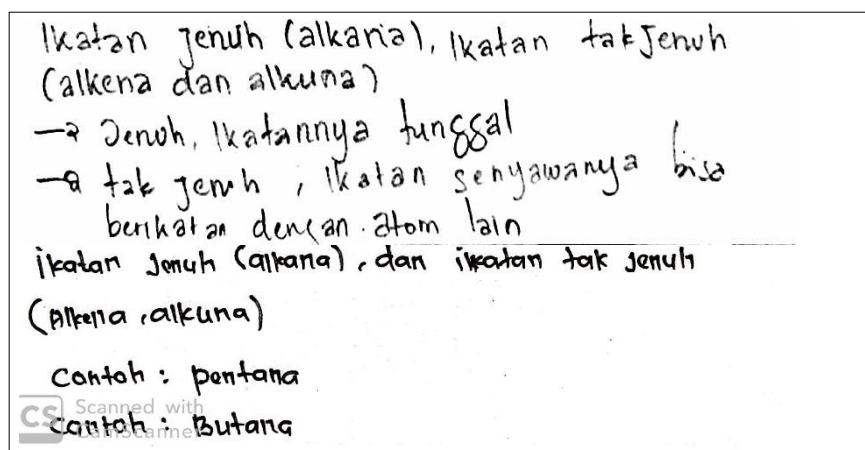 Ikatan Jenuh (alkana), Ikatan tak Jenuh
(alkena dan alkuna)
→ Jenuh, Ikatannya tunggal
→ tak jenuh, Ikatan senyawanya bisa
berikatan dengan atom lain
ikatan Jenuh (alkana), dan ikatan tak jenuh
(Alkena, alkuna)
contoh : pentana
contoh : Butana
CS Scanned with
CamScanner